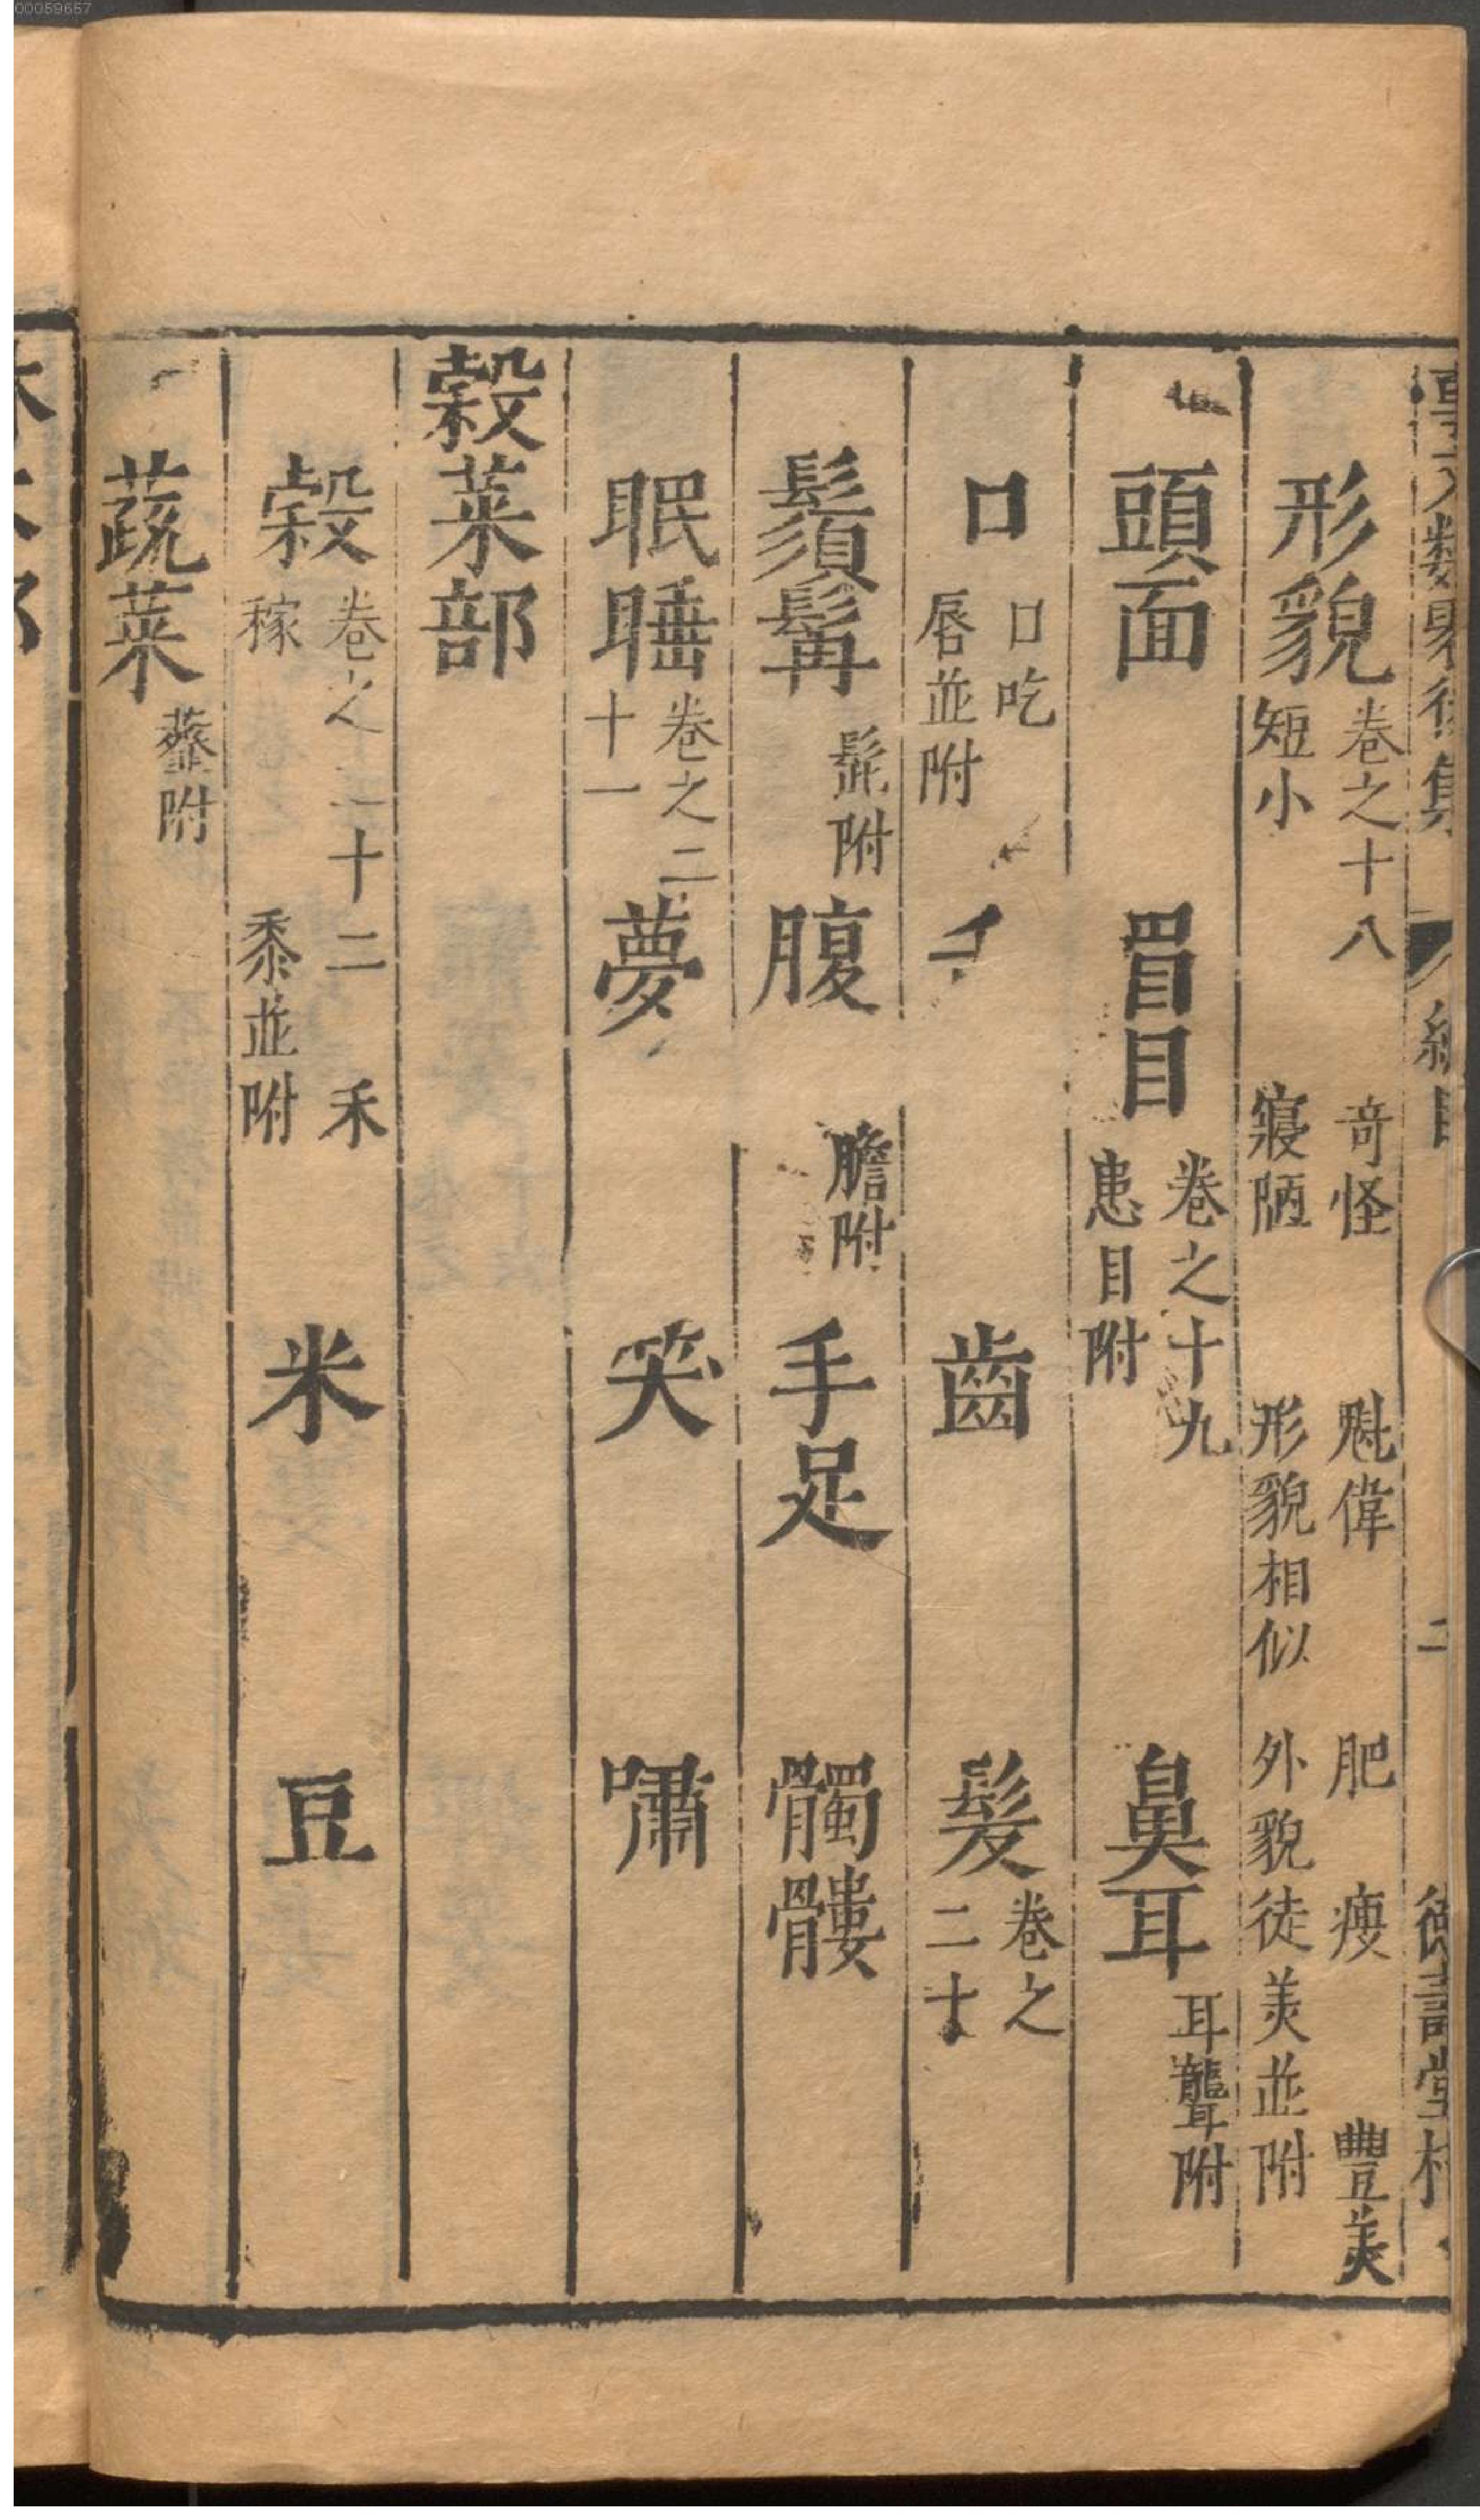 00059657
形貌 卷之十八 奇怪 魁偉 肥 瘦 豐美 短小 寢陋 形貌相似 外貌徒美並附
頭面 眉目 卷之十九 患目附 鼻耳 耳聾附
口 口吃 唇並附 齒 髮 卷之二十
鬚髯 髭附 腹 膽附 手足 髑髏
眠睡 卷之二十一 夢 笑 嘯
穀菜部
穀 卷之二十二 禾 稼 黍並附 米 豆
蔬菜 虀附